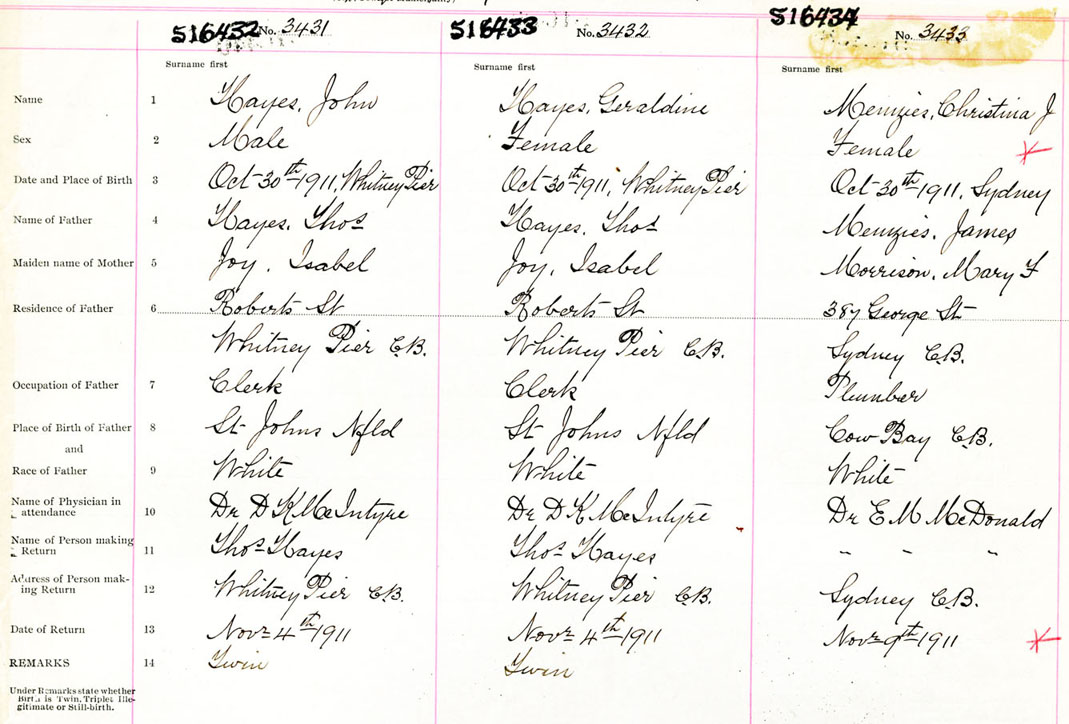 516432 No. 3431 516433 No. 3432 516434 No. 3433
Surname first Surname first Surname first
Name 1 Hayes, John Hayes, Geraldine Menzies, Christina J
Sex 2 Male Female Female
Date and Place of Birth 3 Oct 30th 1911, Whitney Pier Oct 30th 1911, Whitney Pier Oct 30th 1911, Sydney
Name of Father 4 Hayes, Thos Hayes, Thos Menzies, James
Maiden name of Mother 5 Joy, Isabel Joy, Isabel Morrison, Mary F
Residence of Father 6 Roberts St Roberts St 387 George St
Whitney Pier C.B. Whitney Pier C.B. Sydney C.B.
Occupation of Father 7 Clerk Clerk Plumber
Place of Birth of Father 8 St Johns Nfld St Johns Nfld Cow Bay C.B.
and
Race of Father 9 White White White
Name of Physician in attendance 10 Dr D K McIntyre Dr D K McIntyre Dr E M McDonald
Name of Person making Return 11 Thos Hayes Thos Hayes " " "
Address of Person making Return 12 Whitney Pier C.B. Whitney Pier C.B. Sydney C.B.
Date of Return 13 Novr 4th 1911 Novr 4th 1911 Novr 9th 1911
REMARKS 14 Twin Twin
Under Remarks state whether
Birth is Twin, Triplet, Ille-
gitimate or Still-birth.